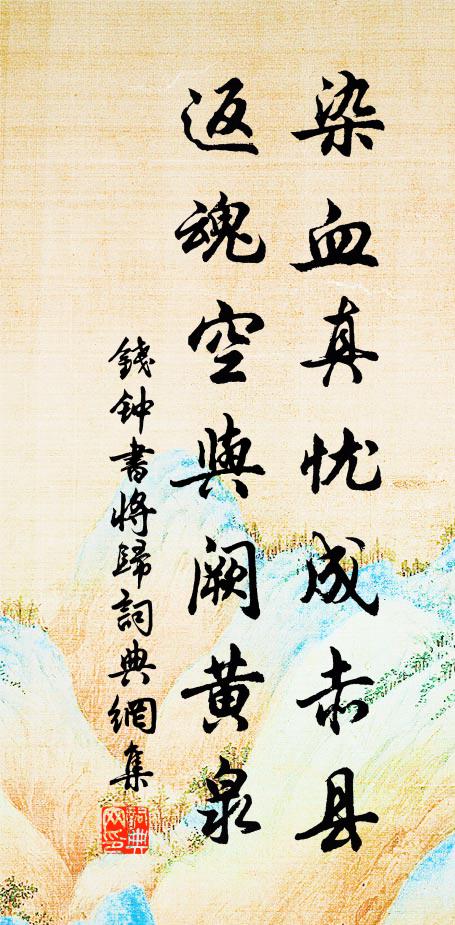 染血真忧成赤县
返魂空與阙黄泉
錢钟書将歸詞典網集
詞典网印